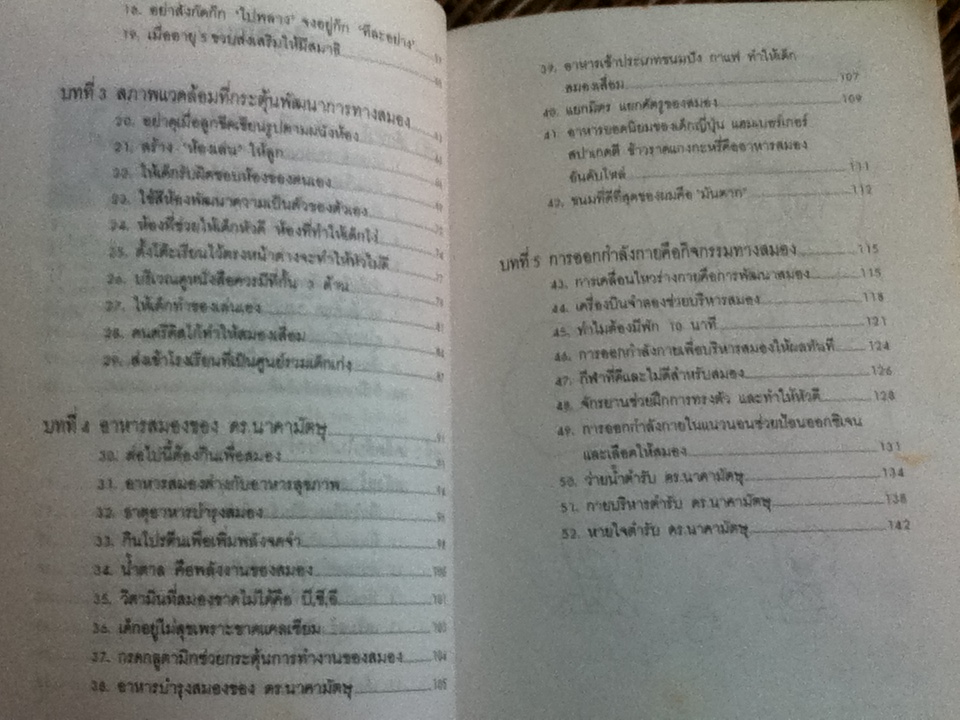 18. อย่าสั่งกัดกัก "ไปพลาง" จงอยู่กัก "ทีละอย่าง"
19. เมื่ออายุ 5 ขวบส่งเสริมให้มีสมาธิ
บทที่ 3 สภาพแวดล้อมที่กระตุ้นพัฒนาการทางสมอง
20. อย่าดุเมื่อลูกขีดเขียนรูปตามผนังห้อง
21. สร้าง "ห้องเล่น" ให้ลูก
22. ให้เด็กรับผิดชอบห้องของตนเอง
23. ใช้สีห้องพัฒนาความเป็นตัวของตัวเอง
24. ห้องที่ช่วยให้เด็กหัวดี ห้องที่ทำให้เด็กโง่
25. ตั้งโต๊ะเรียนไว้ตรงหน้าต่างจะทำให้หัวไม่ดี
26. บริเวณดูหนังสือควรมีที่กั้น 3 ด้าน
27. ให้เด็กทำของเล่นเอง
28. ดนตรีคิดไก๋ทำให้สมองเสื่อม
29. ส่งเข้าโรงเรียนที่เป็นศูนย์รวมเด็กเก่ง 87
บทที่ 4 อาหารสมองของ ดร.นาคามัตษุ 91
30. ต่อไปนี้ต้องกินเพื่อสมอง 91
31. อาหารสมองต่างกับอาหารสุขภาพ
32. ธาตุอาหารบำรุงสมอง
33. กินโปรตีนเพื่อเพิ่มพลังจดจำ
34. น้ำตาล คือพลังงานของสมอง 100
35. วิตามินที่สมองขาดไม่ได้คือ บี,ซี,อี 101
36. เด็กอยู่ไม่สุขเพราะขาดแคลเซียม 103
37. กรดกลูตามิกช่วยกระตุ้นการทำงานของสมอง 104
38. อาหารบำรุงสมองของ ดร.นาคามัตษุ 105
39. อาหารเช้าประเภทขนมปัง กาแฟ ทำให้เด็ก
สมองเสื่อม 107
40. แยกมิตร แยกศัตรูของสมอง 109
41. อาหารยอดนิยมของเด็กญี่ปุ่น แฮมเบอร์เกอร์
สปาเกตตี ข้าวราดแกงกะหรี่คืออาหารสมอง
อันดับโหล่ 111
42. ขนมที่ดีที่สุดของผมคือ "มันตาก" 112
บทที่ 5 การออกกำลังกายคือกิจกรรมทางสมอง 115
43. การเคลื่อนไหวร่างกายคือการพัฒนาสมอง 115
44. เครื่องบินจำลองช่วยบริหารสมอง 118
45. ทำไมต้องมีพัก 10 นาที 121
46. การออกกำลังกายเพื่อบริหารสมองให้ผลทันที 124
47. กีฬาที่ดีและไม่ดีสำหรับสมอง 126
48. จักรยานช่วยฝึกการทรงตัว และทำให้หัวดี 128
49. การออกกำลังกายในแนวนอนช่วยป้อนออกซิเจน
และเลือดให้สมอง 131
50. ว่ายน้ำตำรับ ดร.นาคามัตษุ 134
51. กายบริหารตำรับ ดร.นาคามัตษุ 138
52. หายใจตำรับ ดร.นาคามัตษุ 142